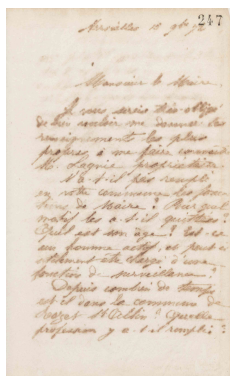 247
18 9bre 92
Monsieur le Maire,
Je vous serais très obligé
de bien vouloir me donner les
renseignements les plus
propres à me faire connaître
M. propriétaire
a-t-il pas rempli
en votre commune les fonc
tions de Maire ? Pour quel
motif les a-t-il quittées ?
Quel est son âge ? Est-ce
un homme actif, et peut-il
utilement être chargé d'une
fonction de surveillance ?
Depuis combien de temps
est-il dans la commune de
St ? Quelle
profession y a-t-il remplie ?